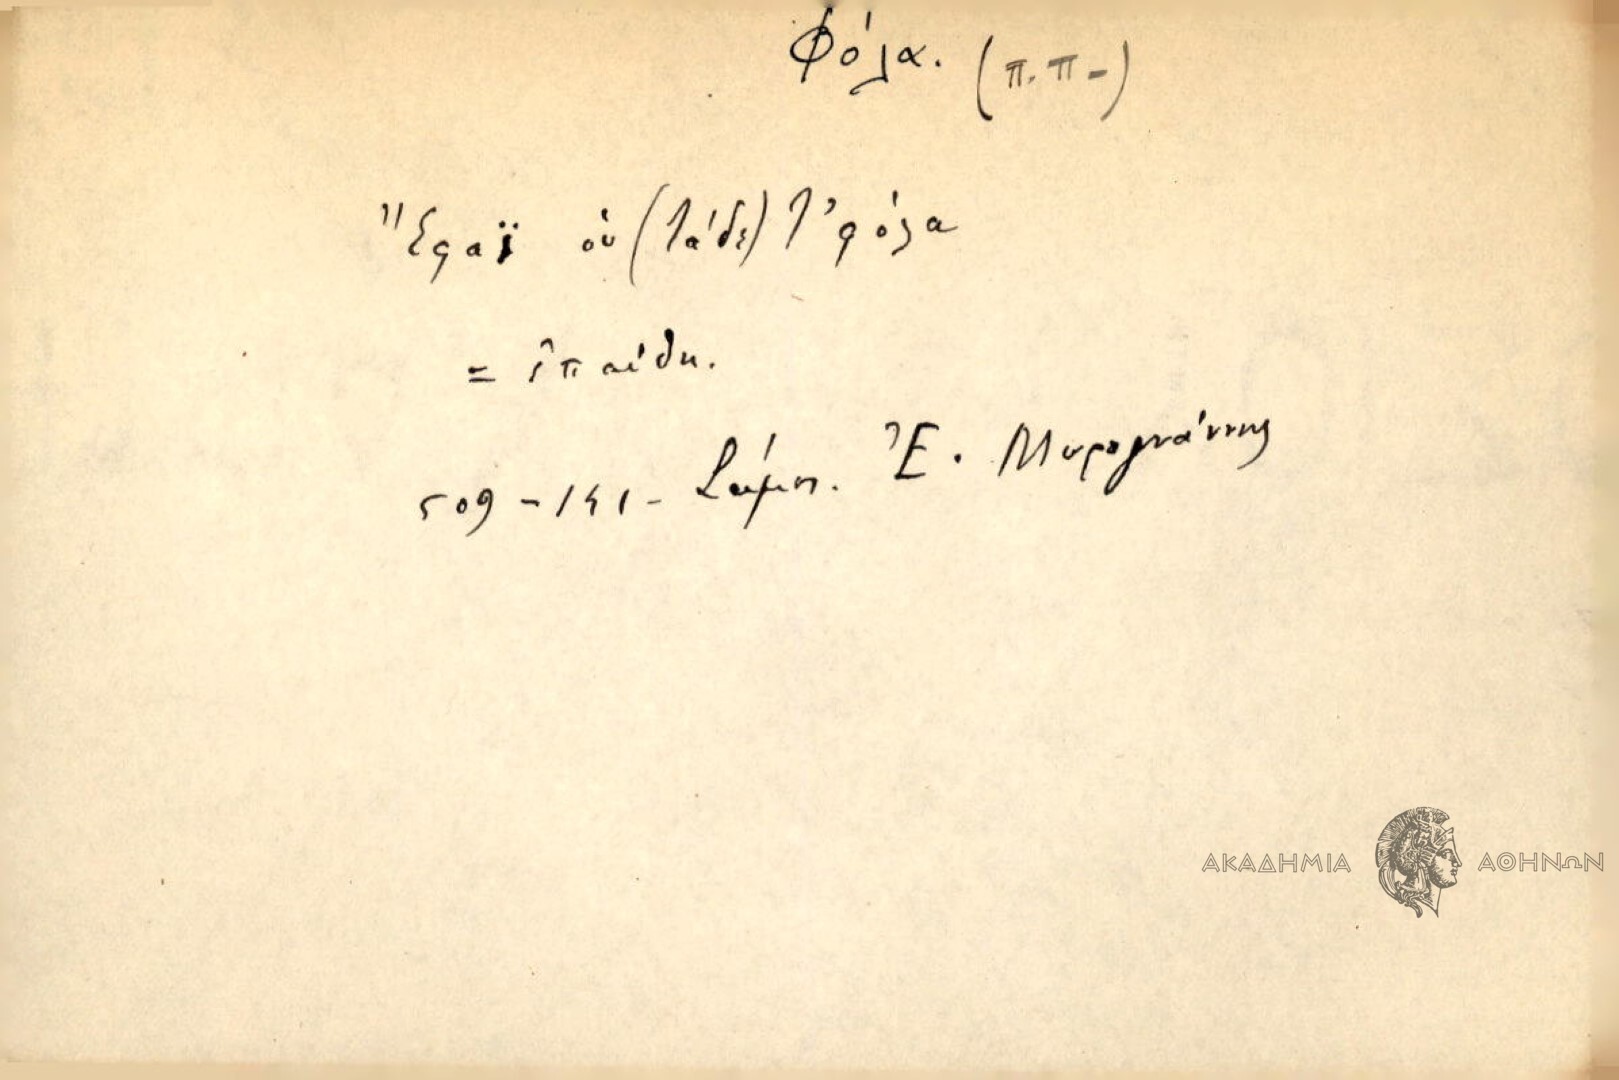 Φόλα. (π.π-)
Ἔφαϊ οὑ (τάδε) τ' φόλα
= ἐπαύθη.
509 - 141 - Σάμος. Ἐ. Μυρογιάννης
ΑΚΑΔΗΜΙΑ ΑΘΗΝΩΝ